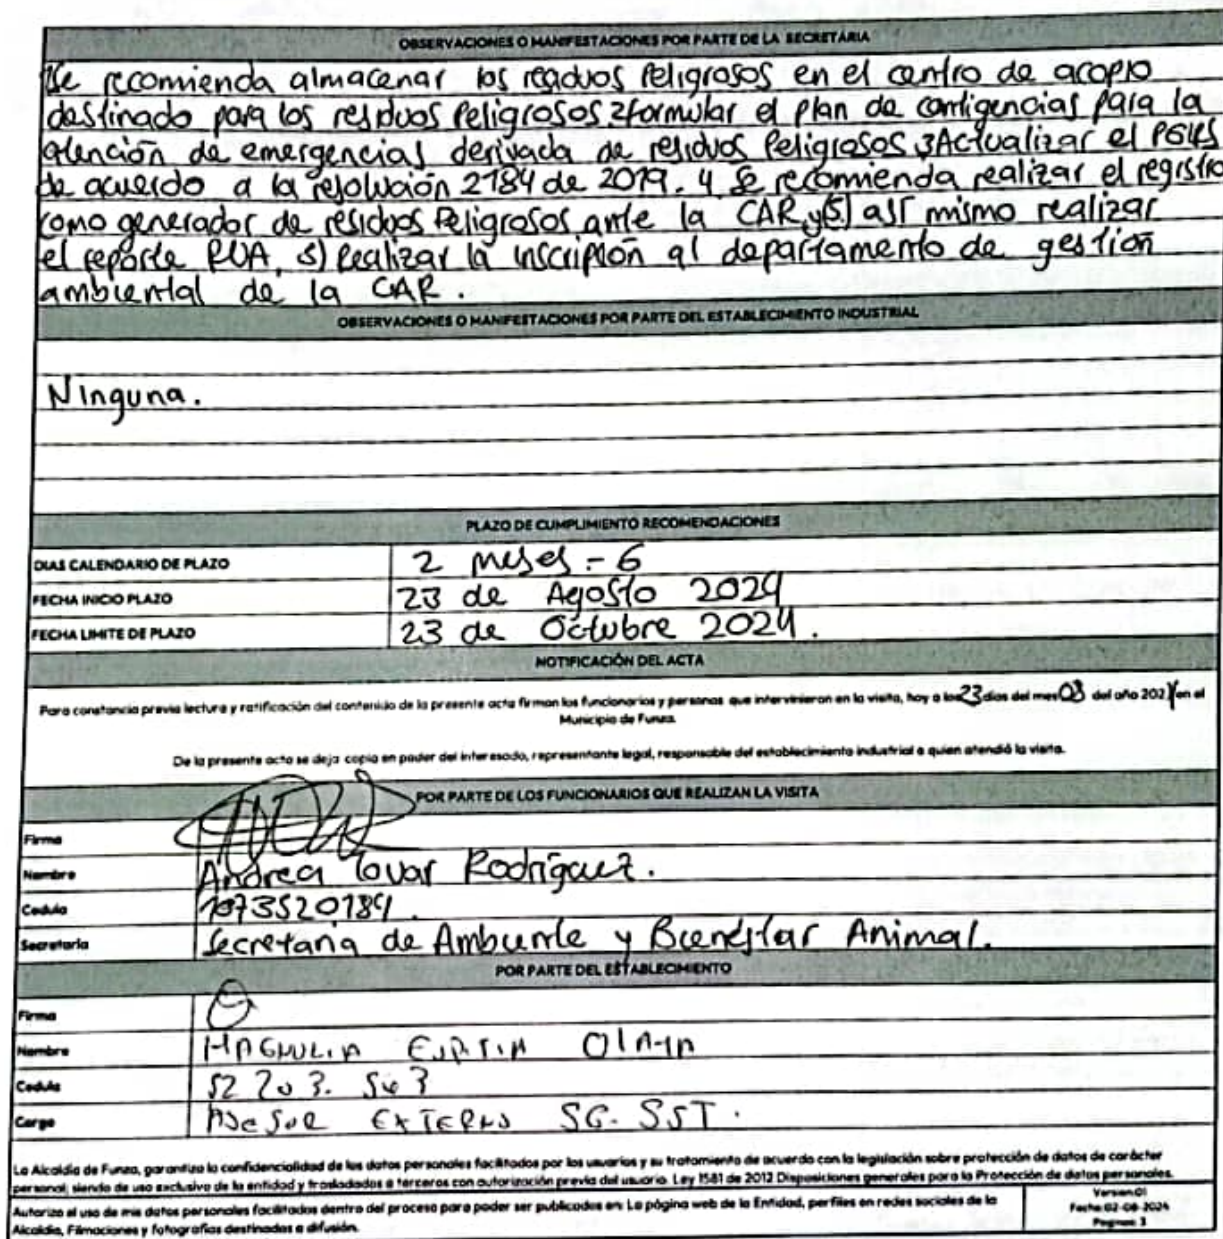 OBSERVACIONES O MANIFESTACIONES POR PARTE DE LA SECRETARIA
1Se recomienda almacenar los residuos Peligrosos en el centro de acopio
destinado para los residuos Peligrosos 2formular el plan de contigencias para la
atención de emergencias derivada de residuos Peligrosos 3Actualizar el PGIRS
de acuerdo a la resolución 2184 de 2019. 4 Se recomienda realizar el registro
como generador de residuos Peligrosos ante la CAR y 5) así mismo realizar
el reporte RUA, 5) Realizar la inscripción al departamento de gestión
ambiental de la CAR.
OBSERVACIONES O MANIFESTACIONES POR PARTE DEL ESTABLECIMIENTO INDUSTRIAL
Ninguna.
PLAZO DE CUMPLIMIENTO RECOMENDACIONES
DIAS CALENDARIO DE PLAZO 2 meses - 6
FECHA INICIO PLAZO 23 de Agosto 2024
FECHA LIMITE DE PLAZO 23 de Octubre 2024.
NOTIFICACIÓN DEL ACTA
Para constancia previa lectura y ratificación del contenido de la presente acta firman los funcionarios y personas que intervinieron en la visita, hoy a los 23 dias del mes 08 del año 2024 en el
Municipio de Funza.
De la presente acta se deja copia en poder del interesado, representante legal, responsable del establecimiento industrial o quien atendió la visita.
POR PARTE DE LOS FUNCIONARIOS QUE REALIZAN LA VISITA
Firma
Nombre Andrea Tovar Rodríguez.
Cedula 1073520184.
Secretaria Secretaria de Ambiente y Bienestar Animal.
POR PARTE DEL ESTABLECIMIENTO
Firma
Nombre MAGNOLIA
Cedula 52 203.
Cargo Asesor EXTERNO SG-SST.
La Alcaldía de Funza, garantiza la confidencialidad de los datos personales facilitados por los usuarios y su tratamiento de acuerdo con la legislación sobre protección de datos de carácter
personal; siendo de uso exclusivo de la entidad y trasladados a terceros con autorización previa del usuario. Ley 1581 de 2012 Disposiciones generales para la Protección de datos personales.
Autorizo el uso de mis datos personales facilitados dentro del proceso para poder ser publicados en: La página web de la Entidad, perfiles en redes sociales de la
Alcaldía, Filmaciones y fotografías destinadas a difusión.
Version:01
Fecha:02-08-2024
Paginas: 3